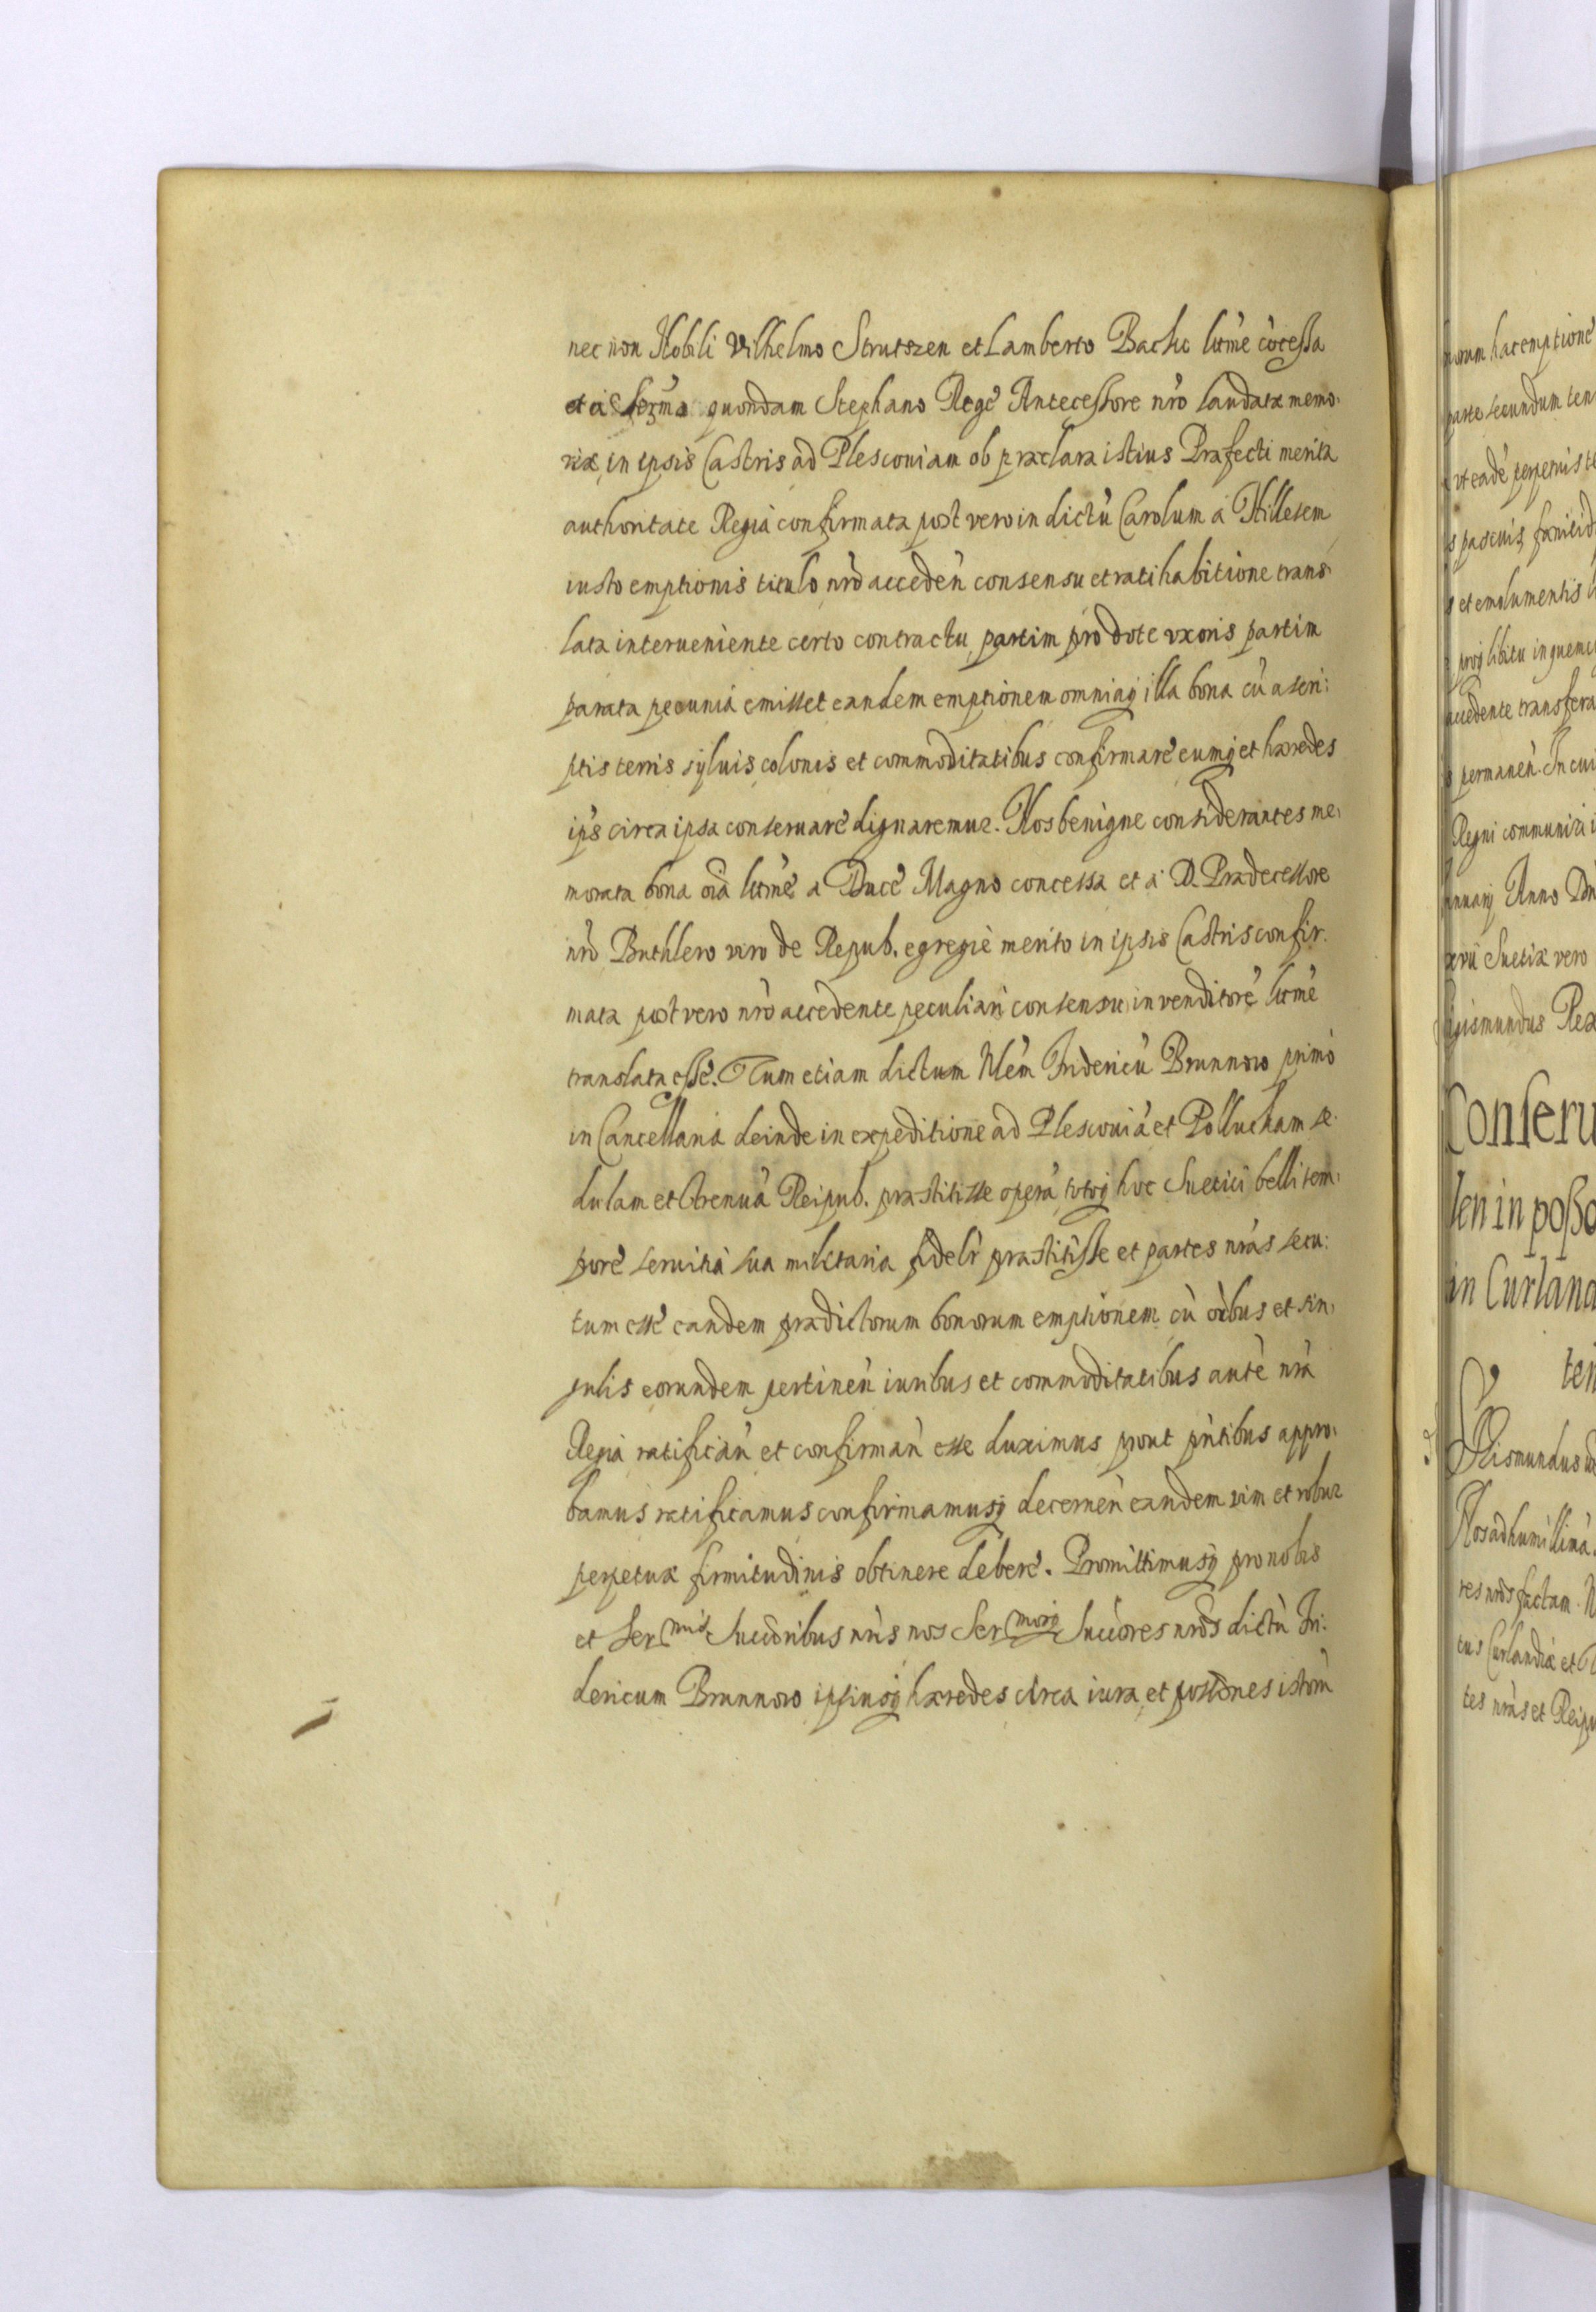 nec non Nobili Vilhelmo Strutszen et Lamberto Bache litme cocessa
et a Sermo quondam Stephano Rege Antecessore nro laudatæ memo:
riæ, in ipsis Castris ad Plesconiam ob præclara istius Præfecti merita
authoritate Regia confirmata post vero in dictu Carolum a Hillesem
iusto emptionis titulo nro acceden consensu et ratihabitione trans:
lata interueniente certo contractu partim pro dote vxoris partim
parata pecunia emisset eandem emptionem omniaq illa bona cu ascri:
ptis terris syluis colonis et commoditatibus confirmare eumq et hæredes
ips circa ipsa conseruare dignaremur. Nos benigne considerantes me:
morata bona oia litme a Duce Magno concessa et a D. Prædecessore
nro Buthlero viro de Repub. egregie merito in ipsis Castris confir:
mata post vero nro accedente peculiari consensu in venditore litme
translata esse. Tum etiam dictum Nlem Fridericu Brunnow primo
in Cancellaria deinde in expeditione ad Plesconia et Pollucham se:
dulam et strenua Reipub. præstitisse opera totoq hoc Suetici belli tem:
pore seruitia sua militaria fidelr præstitisse et partes nras secu:
tum esse eandem prædictorum bonorum emptionem cu oibus et sin:
gulis eorundem pertinen iuribus et commoditatibus aute nra
Regia ratifican et confirman esse duximus prout pntibus appro:
bamus ratificamus confirmamusq decernen eandem vim et robur
perpetuæ firmitudinis obtinere debere. Promittimusq pro nobis
et Ser mis Succoribus nris nos Ser mosq Succores nros dictu Fri:
dericum Brunnow ipsiusq hæredes circa iura et possones istoru
norum hac emptione
parte secundum ten
ut eade perpetuis te
s pascuis, fænicid
s et emolumentis
proq libitu in quemc
accedente transfera
s permanen. In cui
Regni communiri
nuarij Anno Dn
xvii Suetiæ vero
gismundus Rex
Conseru
len in poßo
in Curland
ten
Sigismundus
Nos ad humillima
res nros factam. N
tus Curlandiæ et
tes nras et Reipu